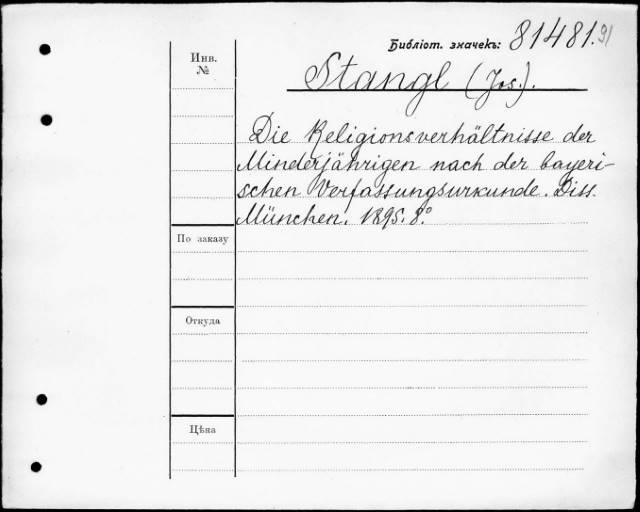 Библіот. значекъ: 81481.91
Инв.
№
Stangl (Jos.).
Die Religionsverhältnisse der
Minderjährigen nach der bayeri-
schen Verfassungsurkunde. Diss.
München. 1895. 8°.
По заказу
Откуда
Цѣна